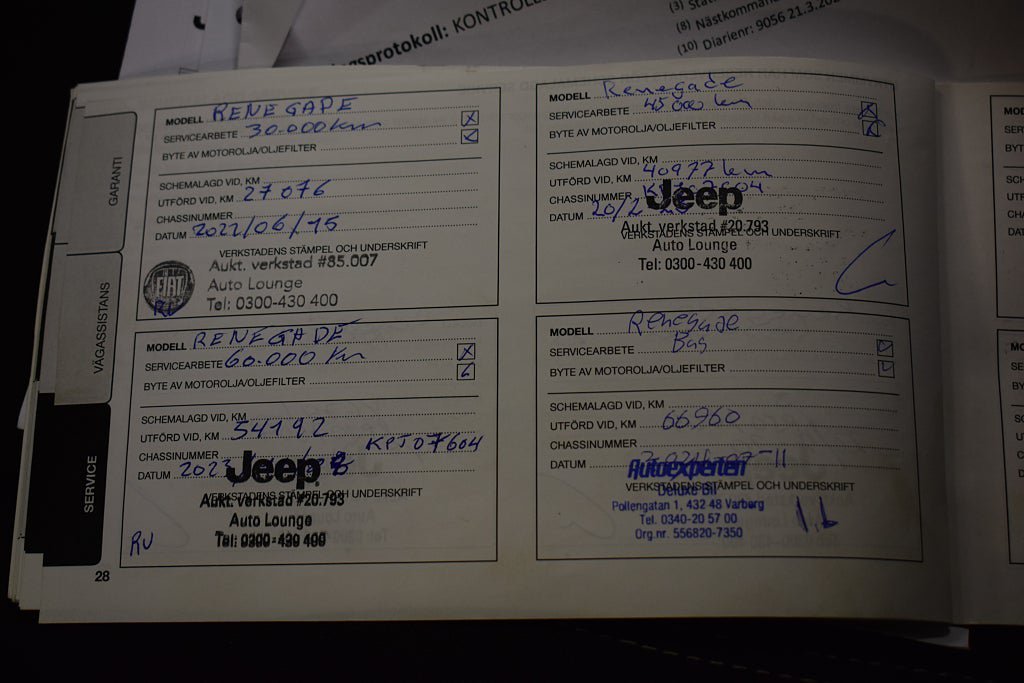 lagsprotokoll: KONTROLL
(3)
(8) Nästkomman
(10) Diarienr: 9056 21.3.20
GARANTI
VÄGASSISTANS
SERVICE
MODELL RENEGADE
SERVICEARBETE 30.000 km
BYTE AV MOTOROLJA/OLJEFILTER
SCHEMALAGD VID, KM
UTFÖRD VID, KM 27076
CHASSINUMMER
DATUM 2022/06/15
VERKSTADENS STÄMPEL OCH UNDERSKRIFT
FIAT
Aukt. verkstad #85.007
Auto Lounge
Tel: 0300-430 400
RU
MODELL Renegade
SERVICEARBETE 45000 km
BYTE AV MOTOROLJA/OLJEFILTER
SCHEMALAGD VID, KM
UTFÖRD VID, KM 40977 km
CHASSINUMMER
DATUM
Jeep
VERKSTADENS STÄMPEL OCH UNDERSKRIFT
Aukt. verkstad #20.793
Auto Lounge
Tel: 0300-430 400
MODELL RENEGADE
SERVICEARBETE 60.000 Km
BYTE AV MOTOROLJA/OLJEFILTER
SCHEMALAGD VID, KM
UTFÖRD VID, KM 54192
CHASSINUMMER KPJ07604
DATUM 2023
Jeep
VERKSTADENS STÄMPEL OCH UNDERSKRIFT
Aukt. verkstad #20.793
Auto Lounge
Tel: 0300-430 400
RU
MODELL Renegade
SERVICEARBETE Bas
BYTE AV MOTOROLJA/OLJEFILTER
SCHEMALAGD VID, KM
UTFÖRD VID, KM 66960
CHASSINUMMER
DATUM
Autoexperten
VERKSTADENS STÄMPEL OCH UNDERSKRIFT
Deluxe Bil
Pollengatan 1, 432 48 Varberg
Tel. 0340-20 57 00
Org.nr. 556820-7350
28